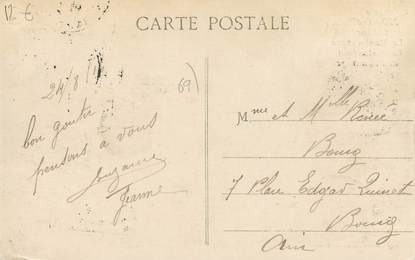 12 €
CARTE POSTALE
24/8
69)
bon gouter
pensons à vous
Suzanne
Jeanne
Mme et Melle Renée
Bourg
7 Place Edgar Quinet
Bourg
Ain